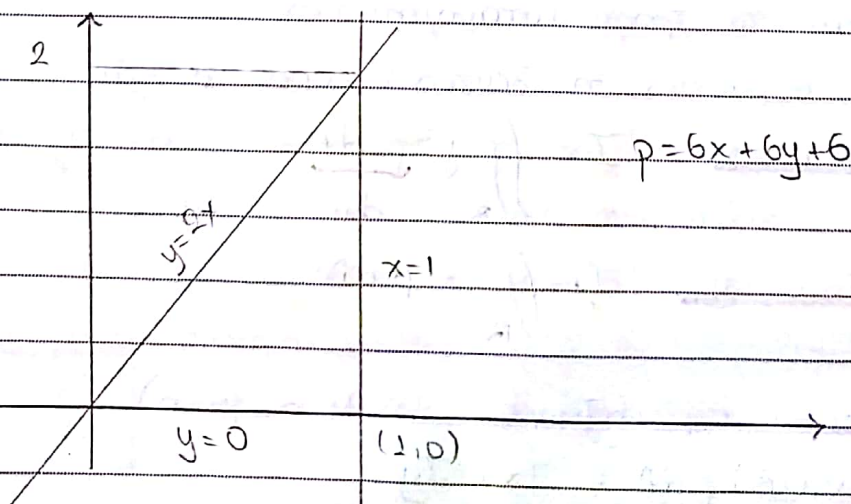 2
p=6x+6y+6
y=2x
x=1
y=0
(1,0)